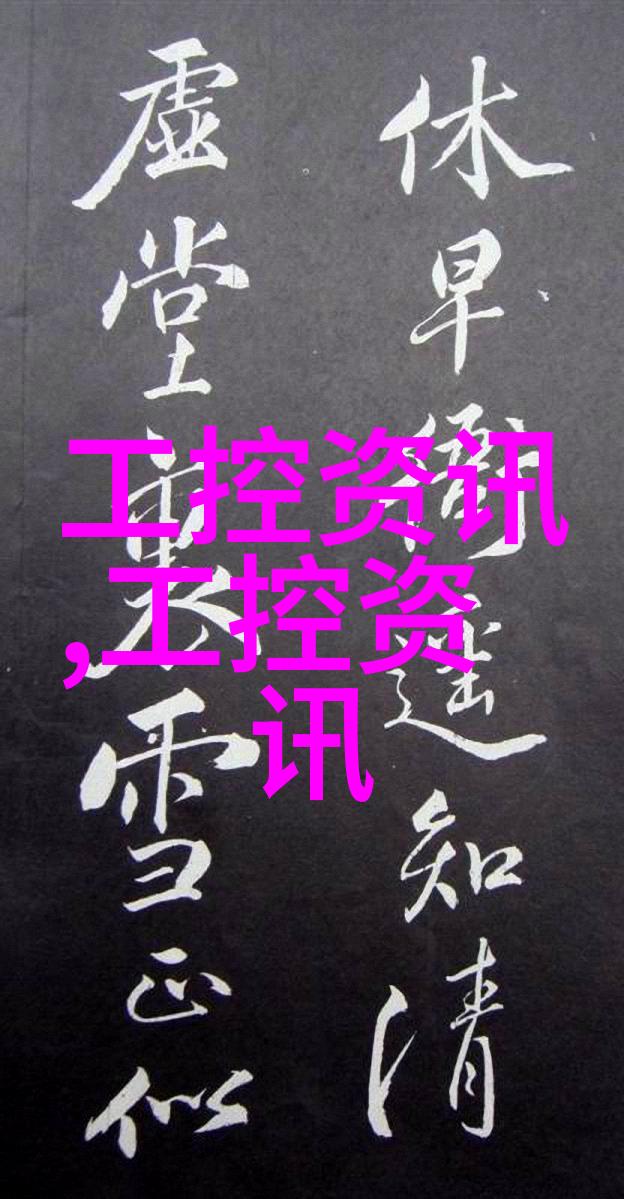 休早衙遥知清
虚堂雪正似
工控资讯
,工控资
讯